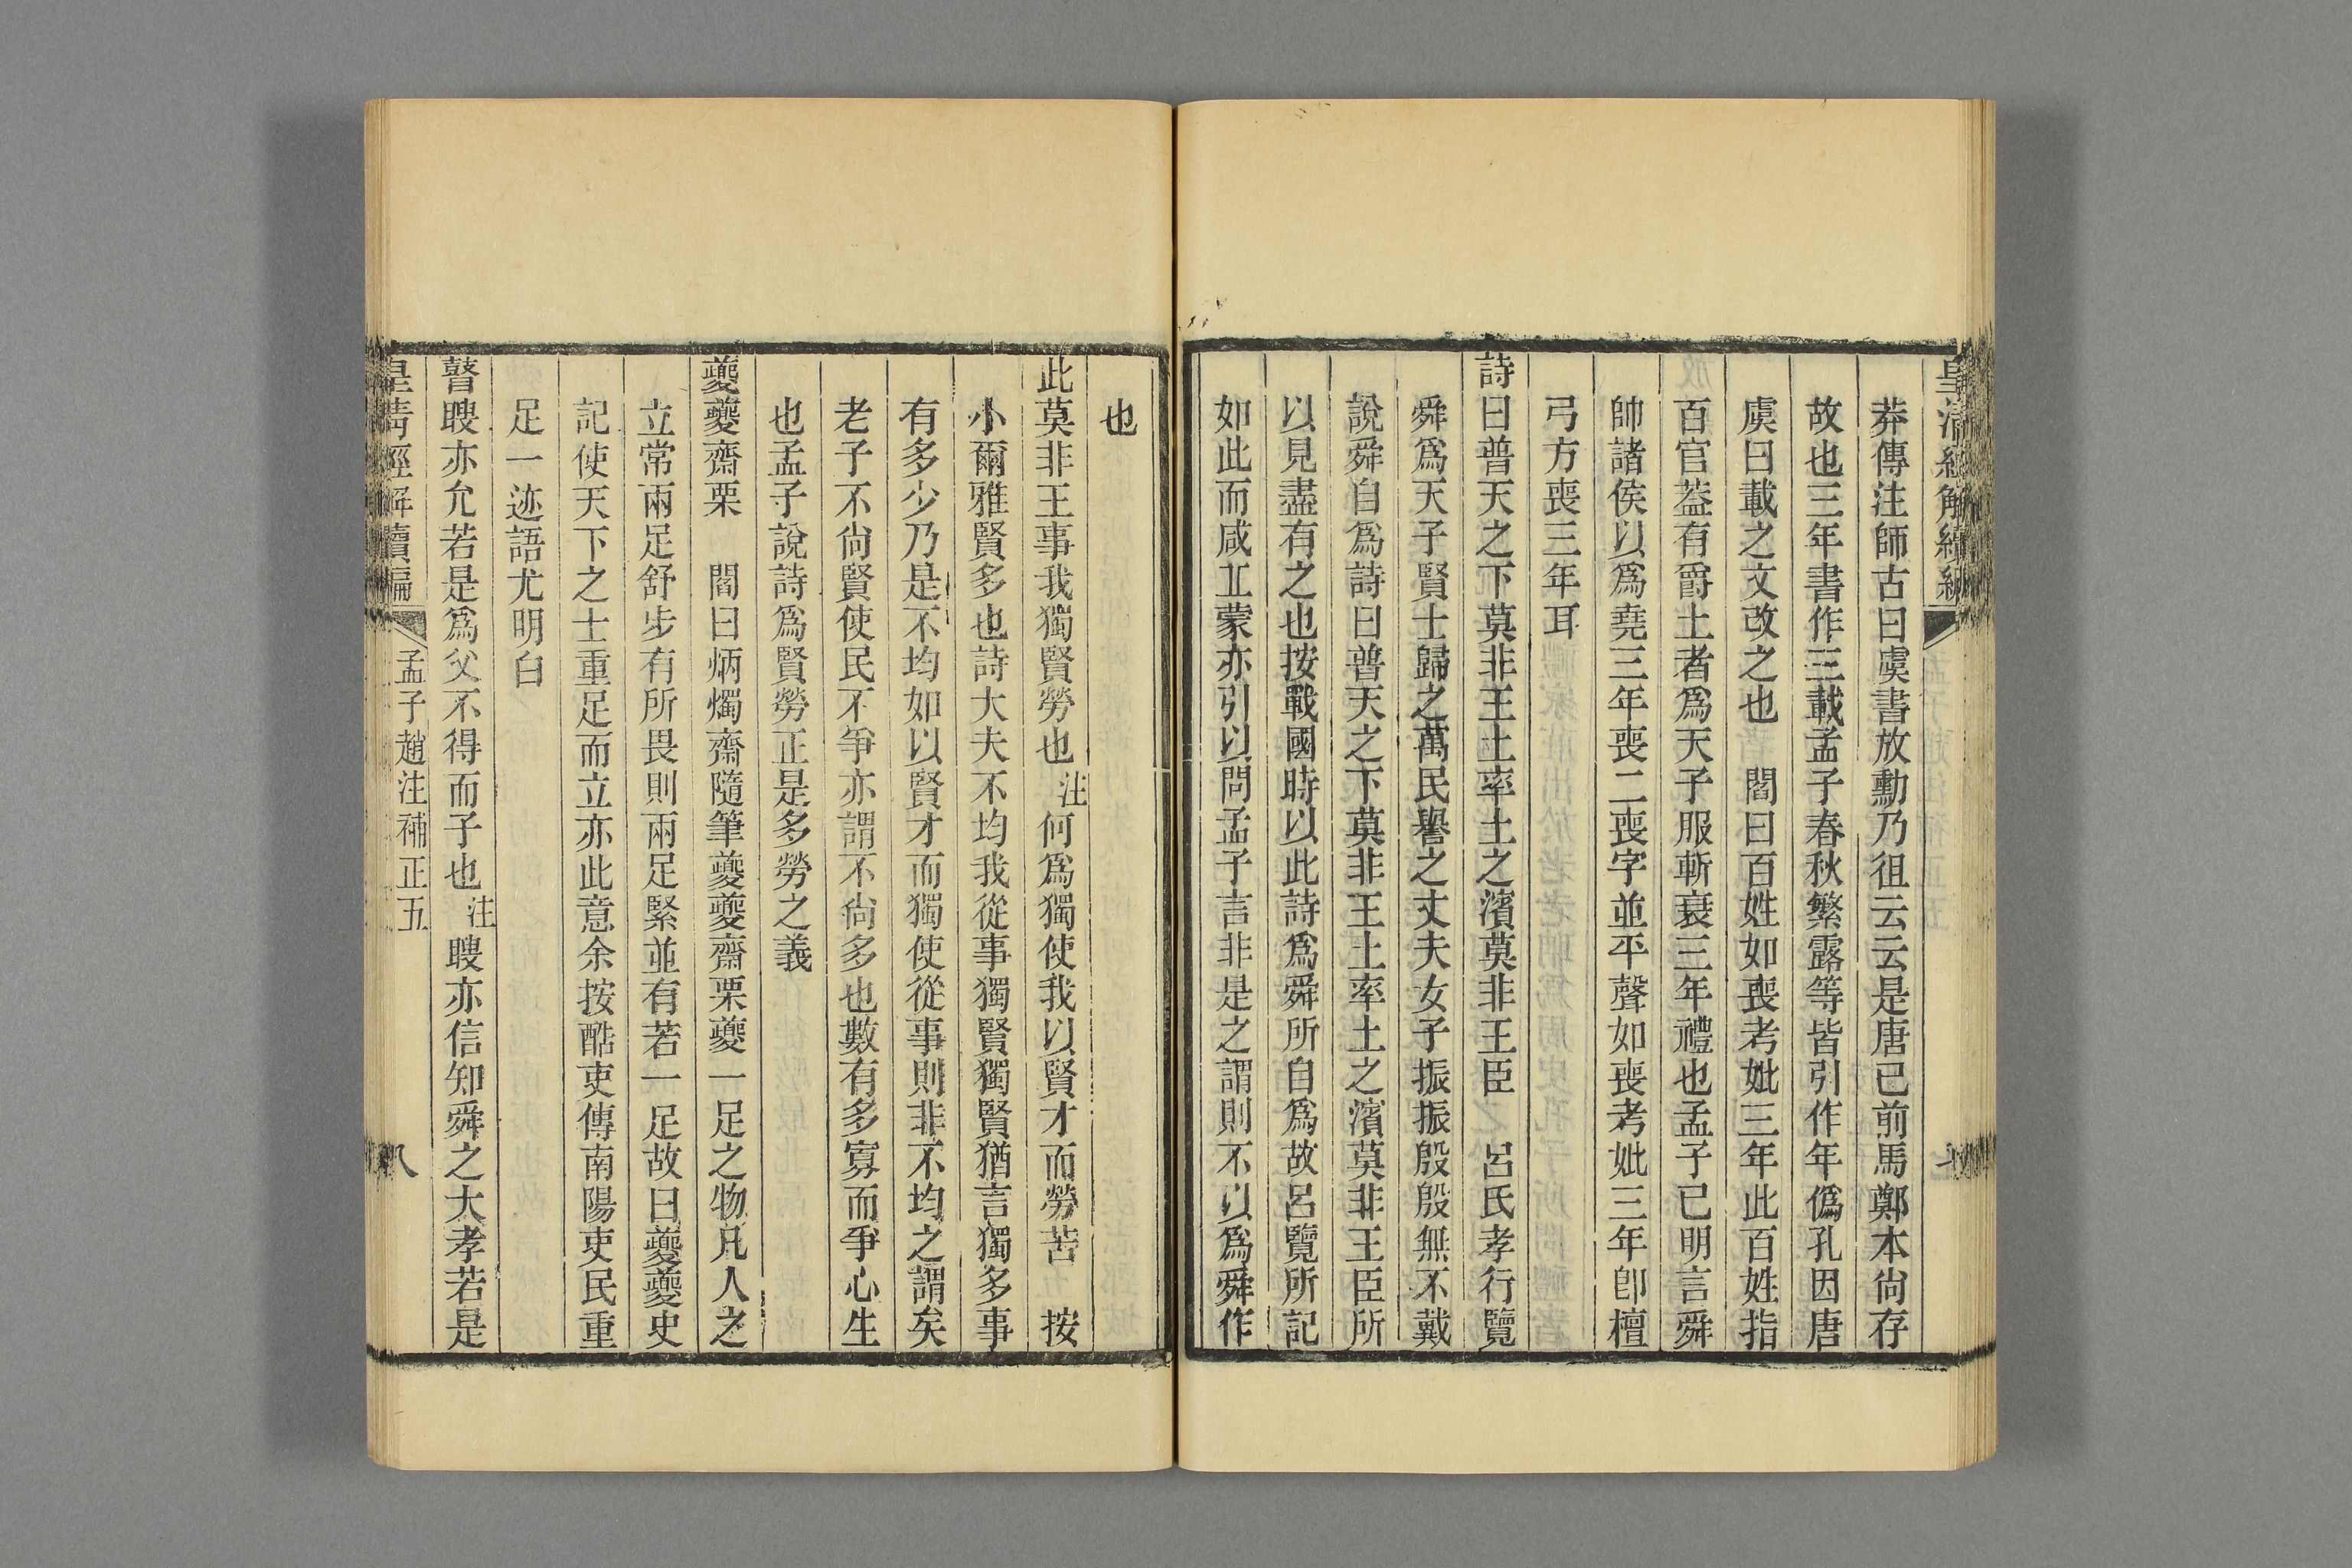 皇清經解續編
莽傳注師古曰虞書放勳乃徂云云是唐已前馬鄭本尙存
故也三年書作三載孟子春秋繁露等皆引作年僞孔因唐
虞曰載之文改之也　閻曰百姓如喪考妣三年此百姓指
百官葢有爵土者爲天子服斬衰三年禮也孟子已明言舜
帥諸侯以爲堯三年喪二喪字並平聲如喪考妣三年卽檀
弓方喪三年耳
詩曰普天之下莫非王土率土之濱莫非王臣　呂氏孝行覽
舜爲天子賢士歸之萬民譽之丈夫女子振振殷殷無不戴
說舜自爲詩曰普天之下莫非王土率土之濱莫非王臣所
以見盡有之也按戰國時以此詩爲舜所自爲故呂覽所記
如此而咸丠蒙亦引以問孟子言非是之謂則不以爲舜作
也
此莫非王事我獨賢勞也注何爲獨使我以賢才而勞苦　按
小爾雅賢多也詩大夫不均我從事獨賢獨賢猶言獨多事
有多少乃是不均如以賢才而獨使從事則非不均之謂矣
老子不尙賢使民不爭亦謂不尙多也數有多寡而爭心生
也孟子說詩爲賢勞正是多勞之義
夔夔齋栗　閻曰炳燭齋隨筆夔夔齋栗夔一足之物凡人之
立常兩足舒步有所畏則兩足緊並有若一足故曰夔夔史
記使天下之士重足而立亦此意余按酷吏傳南陽吏民重
足一迹語尤明白
瞽瞍亦允若是爲父不得而子也注瞍亦信知舜之大孝若是
皇清經解續編　孟子趙注補正五　八